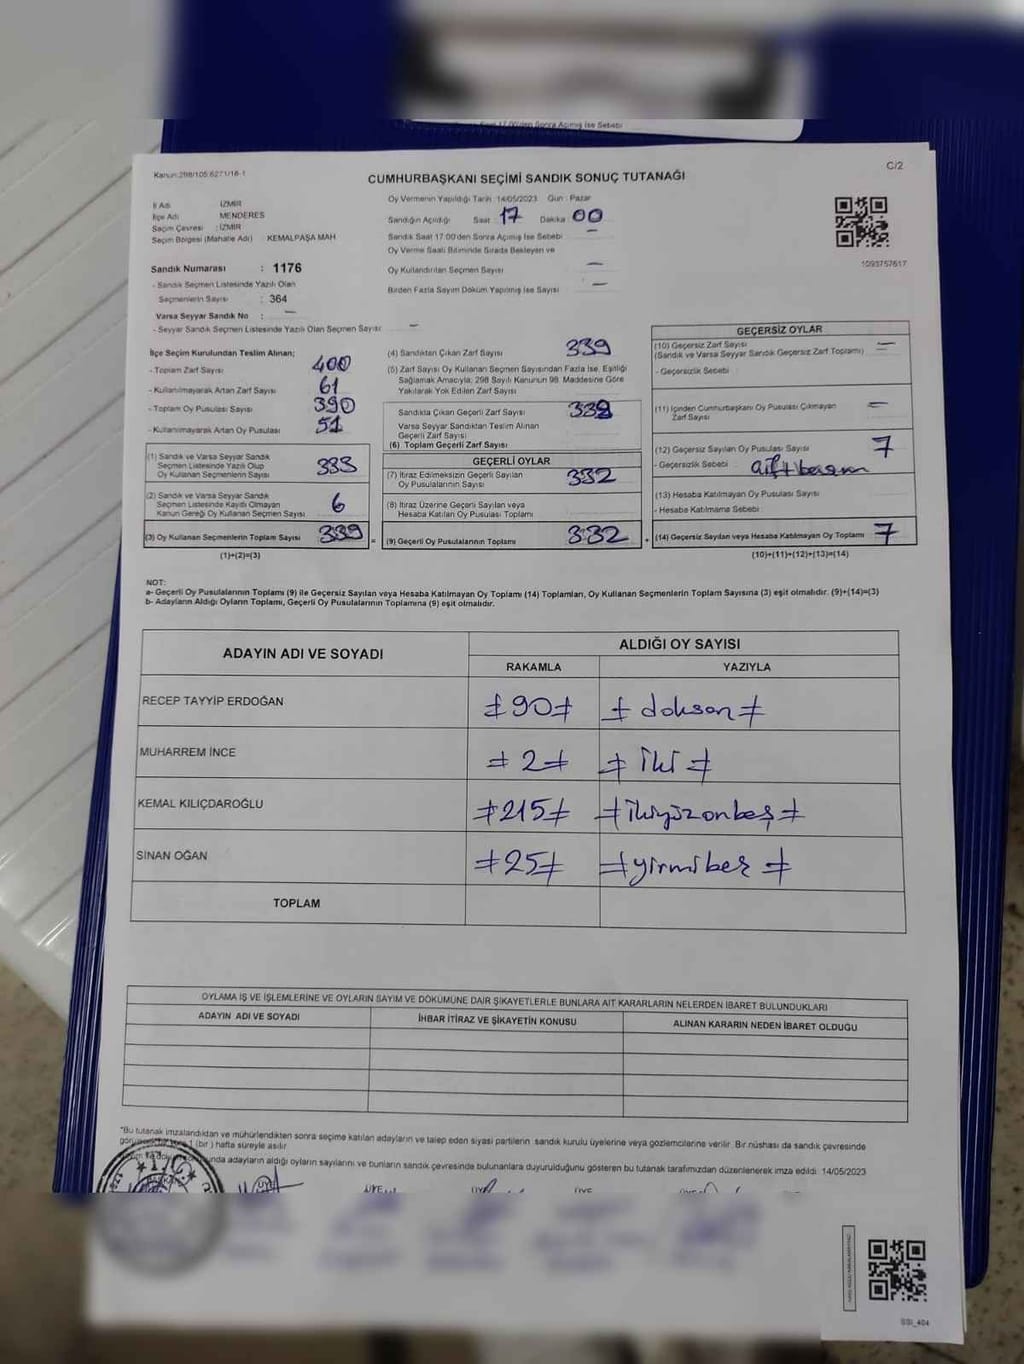 Kanun:298/105:6271/16-1
C/2
CUMHURBAŞKANI SEÇİMİ SANDIK SONUÇ TUTANAĞI
İl Adı : İZMİR
İlçe Adı : MENDERES
Seçim Çevresi : İZMİR
Seçim Bölgesi (Mahalle Adı) KEMALPAŞA MAH
Sandık Numarası : 1176
- Sandık Seçmen Listesinde Yazılı Olan
Seçmenlerin Sayısı : 364
Varsa Seyyar Sandık No : –
- Seyyar Sandık Seçmen Listesinde Yazılı Olan Seçmen Sayısı : –
Oy Vermenin Yapıldığı Tarih : 14/05/2023 Gün : Pazar
Sandığın Açıldığı Saat : 17 Dakika : 00
Sandık Saat 17:00'den Sonra Açılmış İse Sebebi –
Oy Verme Saati Bitiminde Sırada Bekleyen ve
Oy Kullandırılan Seçmen Sayısı –
Birden Fazla Sayım Döküm Yapılmış İse Sayısı –
1093757617
İlçe Seçim Kurulundan Teslim Alınan;
- Toplam Zarf Sayısı 400
- Kullanılmayarak Artan Zarf Sayısı 61
- Toplam Oy Pusulası Sayısı 390
- Kullanılmayarak Artan Oy Pusulası 51
(1) Sandık ve Varsa Seyyar Sandık
Seçmen Listesinde Yazılı Olup
Oy Kullanan Seçmenlerin Sayısı 333
(2) Sandık ve Varsa Seyyar Sandık
Seçmen Listesinde Kayıtlı Olmayan
Kanun Gereği Oy Kullanan Seçmen Sayısı 6
(3) Oy Kullanan Seçmenlerin Toplam Sayısı 339
(1)+(2)=(3)
(4) Sandıktan Çıkan Zarf Sayısı 339
(5) Zarf Sayısı Oy Kullanan Seçmen Sayısından Fazla İse, Eşitliği
Sağlamak Amacıyla; 298 Sayılı Kanunun 98. Maddesine Göre
Yakılarak Yok Edilen Zarf Sayısı
Sandıkta Çıkan Geçerli Zarf Sayısı 339
Varsa Seyyar Sandıktan Teslim Alınan
Geçerli Zarf Sayısı
(6) Toplam Geçerli Zarf Sayısı
GEÇERLİ OYLAR
(7) İtiraz Edilmeksizin Geçerli Sayılan
Oy Pusulalarının Sayısı 332
(8) İtiraz Üzerine Geçerli Sayılan veya
Hesaba Katılan Oy Pusulası Toplamı
(9) Geçerli Oy Pusulalarının Toplamı 332
GEÇERSİZ OYLAR
(10) Geçersiz Zarf Sayısı –
(Sandık ve Varsa Seyyar Sandık Geçersiz Zarf Toplamı)
- Geçersizlik Sebebi
(11) İçinden Cumhurbaşkanı Oy Pusulası Çıkmayan
Zarf Sayısı –
(12) Geçersiz Sayılan Oy Pusulası Sayısı 7
- Geçersizlik Sebebi
(13) Hesaba Katılmayan Oy Pusulası Sayısı
- Hesaba Katılmama Sebebi
(14) Geçersiz Sayılan veya Hesaba Katılmayan Oy Toplamı 7
(10)+(11)+(12)+(13)=(14)
NOT:
a- Geçerli Oy Pusulalarının Toplamı (9) ile Geçersiz Sayılan veya Hesaba Katılmayan Oy Toplamı (14) Toplamları, Oy Kullanan Seçmenlerin Toplam Sayısına (3) eşit olmalıdır. (9)+(14)=(3)
b- Adayların Aldığı Oyların Toplamı, Geçerli Oy Pusulalarının Toplamına (9) eşit olmalıdır.
ADAYIN ADI VE SOYADI ALDIĞI OY SAYISI
RAKAMLA YAZIYLA
RECEP TAYYİP ERDOĞAN ≠90≠ ≠ doksan ≠
MUHARREM İNCE ≠ 2 ≠ ≠ iki ≠
KEMAL KILIÇDAROĞLU ≠215≠ ≠ikiyüzonbeş≠
SİNAN OĞAN ≠25≠ ≠yirmibeş ≠
TOPLAM
OYLAMA İŞ VE İŞLEMLERİNE VE OYLARIN SAYIM VE DÖKÜMÜNE DAİR ŞİKAYETLERLE BUNLARA AİT KARARLARIN NELERDEN İBARET BULUNDUKLARI
ADAYIN ADI VE SOYADI İHBAR İTİRAZ VE ŞİKAYETİN KONUSU ALINAN KARARIN NEDEN İBARET OLDUĞU
*Bu tutanak imzalandıktan ve mühürlendikten sonra seçime katılan adayların ve talep eden siyasi partilerin sandık kurulu üyelerine veya gözlemcilerine verilir. Bir nüshası da sandık çevresinde
1 (bir) hafta süreyle asılır.
adayların aldığı oyların sayılarını ve bunların sandık çevresinde bulunanlara duyurulduğunu gösteren bu tutanak tarafımızdan düzenlenerek imza edildi. 14/05/2023
SSİ_404